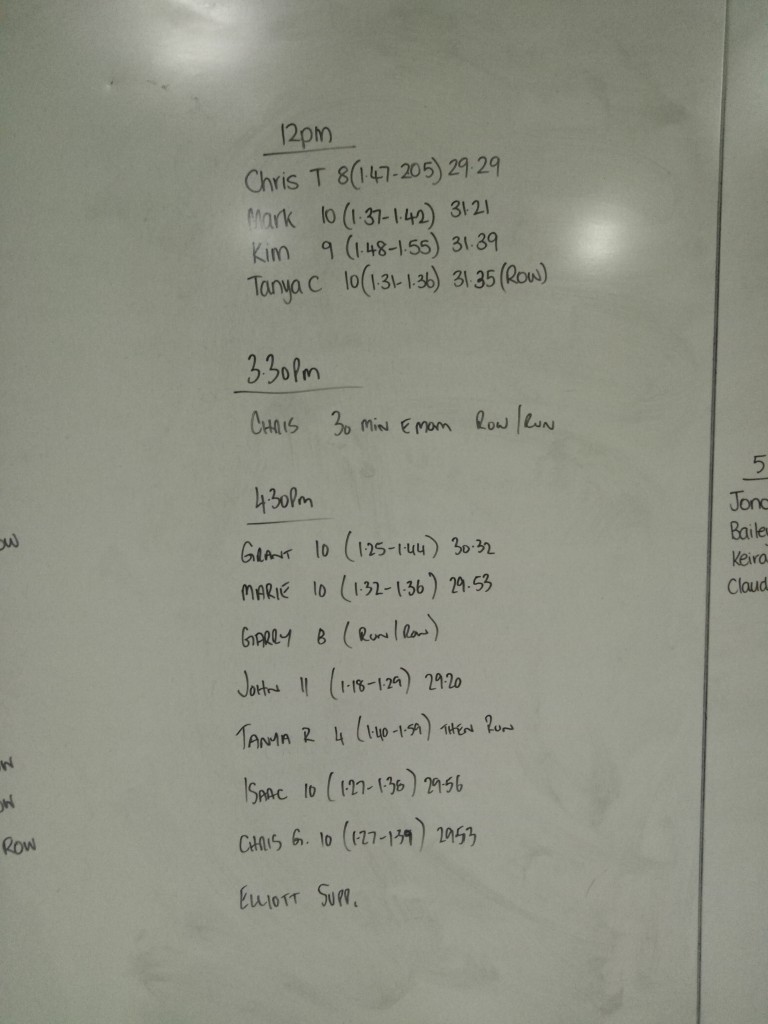 12pm
Chris T 8(1.47-205) 29.29
Mark 10 (1.37-1.42) 31.21
Kim 9 (1.48-1.55) 31.39
Tanya C 10(1.31-1.36) 31.35 (Row)
3.30Pm
CHRIS 30 MIN EMOM ROW/RUN
4.30Pm
GRANT 10 (1.25-1.44) 30.32
MARIE 10 (1.32-1.36) 29.53
GARRY 8 (RUN/ROW)
JOHN 11 (1.18-1.29) 29.20
TANYA R 4 (1.40-1.59) THEN RUN
ISAAC 10 (1.27-1.36) 29.56
CHRIS G. 10 (1.27-1.39) 29.53
ELLIOTT SUPP.
OW
W
OW
ROW
5
Jono
Baile
Keira
Claud